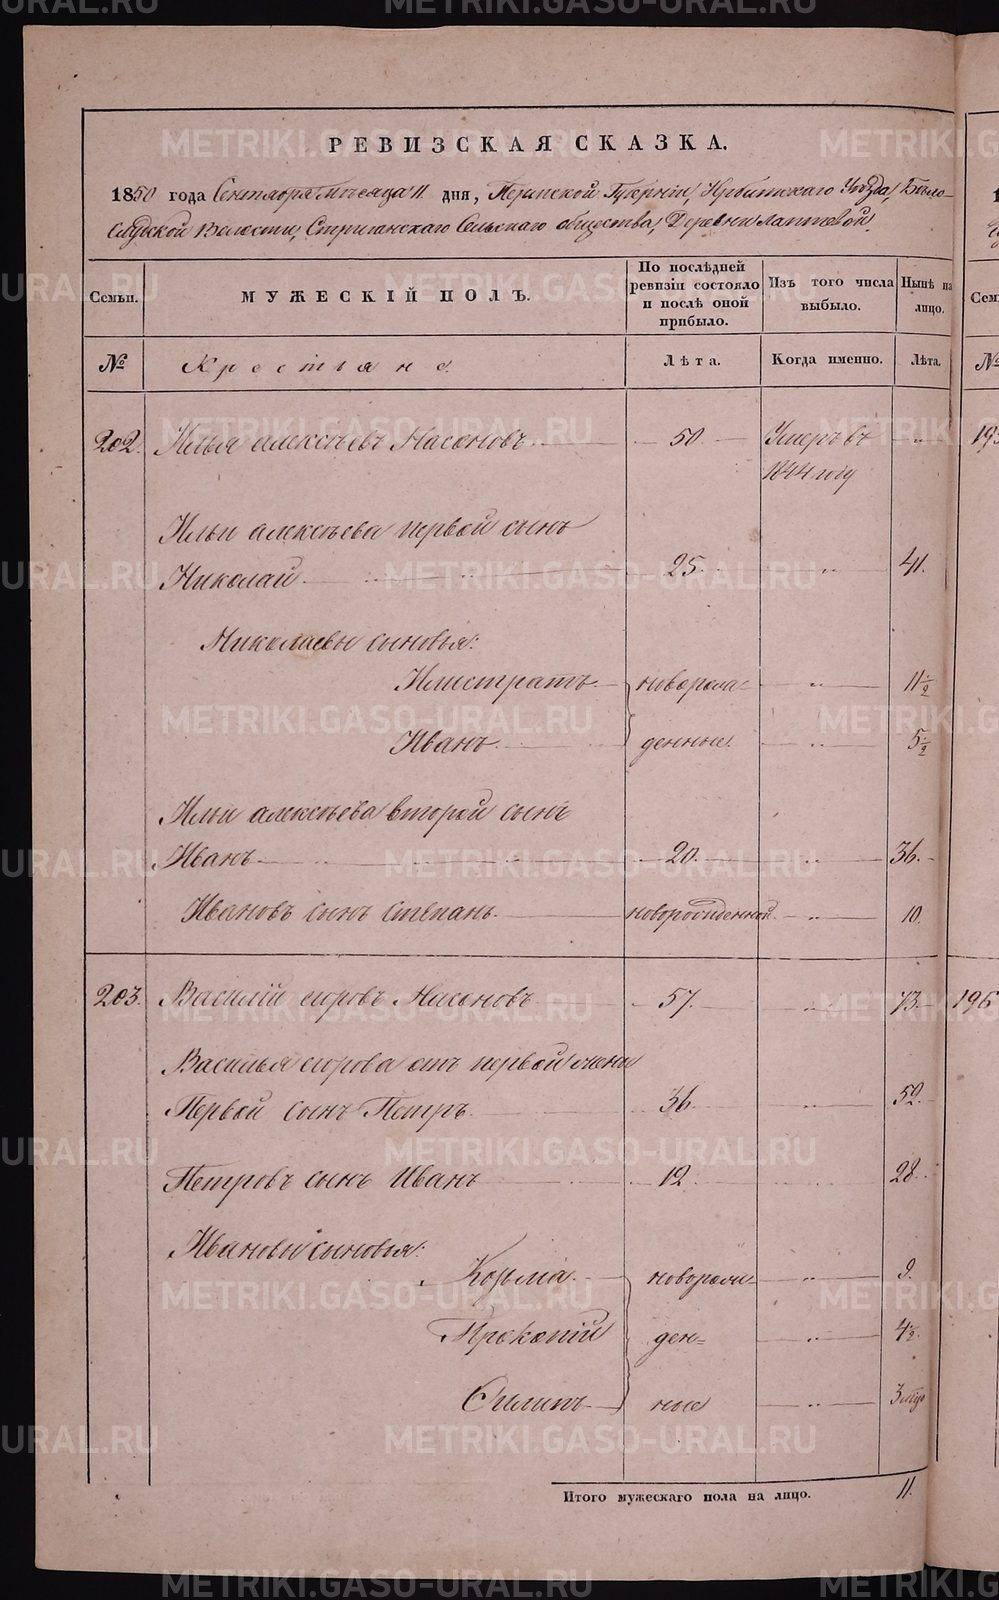 РЕВИЗСКАЯ СКАЗКА.
1850 года Сентября месяца 11 дня, Пермской Губерніи, Ирбитскаго Уезда, Бело-
слудской Волости, Стриганскаго Сельскаго общества, Деревни Лаптевой.
Семьи. МУЖЕСКІЙ ПОЛЪ. По послѣдней ревизіи состояло и послѣ оной прибыло. Изъ того числа выбыло. Нынѣ на лицо.
№ Крестьяне. Лѣта. Когда именно. Лѣта.
202. Илья алексѣевъ Насоновъ 50. Умеръ въ
1844 году
Ильи алексѣева первой сынъ
Николай 25. 41.
Николаевы сыновья:
Илистратъ новорож- 11 1/2
Иванъ денные. 5 1/2
Ильи алексѣева второй сынъ
Иванъ 20. 36.
Ивановъ сынъ Степанъ новорожденной 10.
203. Василій егоровъ Насоновъ 57. 73.
Василья егорова отъ первой жены
Первой сынъ Петръ 36. 52.
Петровъ сынъ Иванъ 12 28.
Ивановы сыновья:
Козьма новорож- 9.
Прокопій ден- 4 1/2.
Филипъ ные 3 мѣс
Итого мужескаго пола на лицо. 11.
195
196
№
METRIKI.GASO-URAL.RU